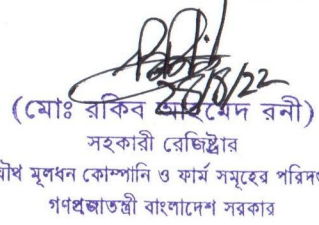 ২৪/৪/22
(মোঃ রকিব আহমেদ রনী)
সহকারী রেজিষ্ট্রার
যৌথ মূলধন কোম্পানি ও ফার্ম সমূহের
গণপ্রজাতন্ত্রী বাংলাদেশ সরকার